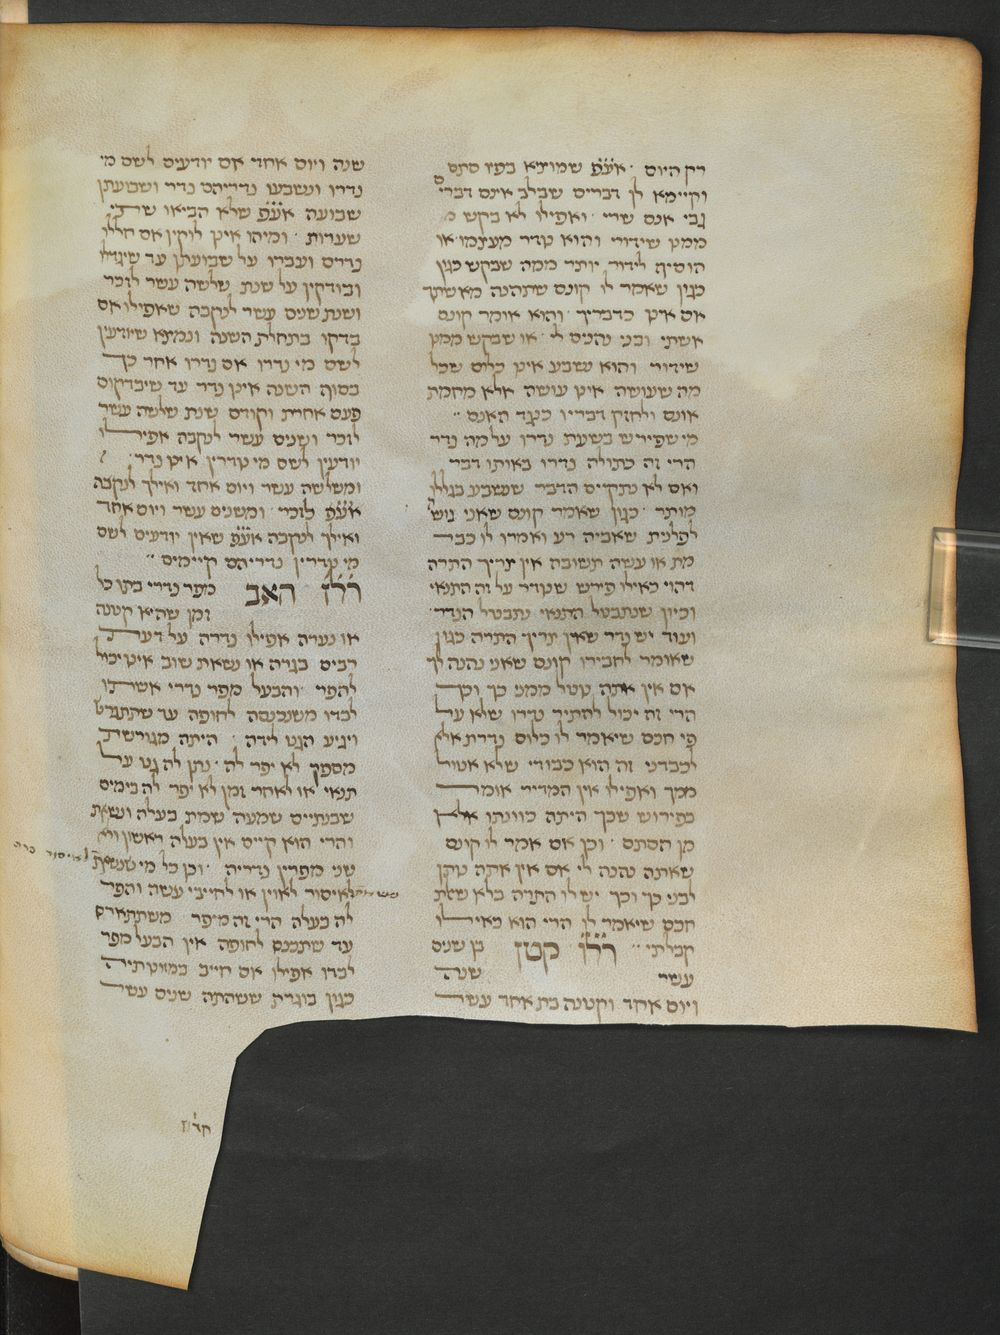 רק היום · אע״פ שמוציא בפיו סתם
וקיימא לן דברים שבלב אינם דברים
גבי אנס שרי · ואפילו לא בקש
ממנו שידור והוא נודר מעצמו או
הוסיף לידור יותר ממה שבקש כגון
כגון שאמר לו קונם שתהנה מאשתך
אם אינו כדבריך · והוא אומר קונם
אשתי ובני נהנים לי · או שבקש ממנו
שידור והוא נשבע אינו כלום שכל
מה שעושה אינו עושה אלא מחמת
אונס ולחזק דבריו כנגד האנס ״
מי שפירש בשעת נדרו על מה נדר
הרי זה כתולה נדרו באותו דבר
ואם לא נתקיים הדבר שנשבע בגללו
מותר · כגון שאמר קונם שאני נושׂ
לפלנית שאביה רע ואמרו לו כבר
מת או עשה תשובה אין צריך התרה
דהוי כאילו פירש שנודר על זה התנאי
וכיון שנתבטל התנאי נתבטל הנדר ·
ועוד יש נדר שאין צריך התרה כגון
שאומר לחבירו קונם שאני נהנה לך
אם אין אתה נוטל ממני כך וכך
הרי זה יכול להתיר נדרו שלא על
פי חכם שיאמר לו כלום נדרת אלא
לכבדני זה הוא כבודי שלא אטול
ממך ואפילו אין המדיר אומר
בפירוש שכך היתה כוונתו אלא
מן הסתם · וכן אם אמר לו קונם
שאתה נהנה לי אם אין אתה נותן
לבני כך וכך יש לו התרה בלא שאלת
חכם שיאמר לו הרי הוא כאילו
קבלתי ״ רל״ו קטן בן שנים
עשר שנה
ויום אחד וקטנה בת אחד עשר
שנה ויום אחד אם יודעים לשם מי
נדרו ונשבעו נדריהם נדר ושבועתן
שבועה אע״פ שלא הביאו שתי
שערות · ומיהו אינן לוקין אם חללו
נדרם ועברו על שבועתן עד שיגדלו
ובודקין על שנת שלשה עשר לזכר
ושנת שנים עשר לנקבה שאפילו אם
בדקו בתחלת השנה ונמצא שיודעין
לשם מי נדרו אם נדרו אחר כך
בסוף השנה אינו נדר עד שיבדקום
פעם אחרת וקודם שנת שלשה עשר
לזכר ושנים עשר לנקבה אפילו
יודעין לשם מי נודרין אינו נדר ·
ומשלשה עשר ויום אחד ואילך לנקבה
אע״פ לזכר · ומשנים עשר ויום אחד
ואילך לנקבה אע״פ שאין יודעים לשם
מי נודרין נדריהם קיימים ״
רל״ז האב מפר נדרי בתו כל
זמן שהיא קטנה
או נערה אפילו נדרה על דעת
רבים בגרה או נשאת שוב אינו יכול
להפר · והבעל מפר נדרי אשתו
לבדו משנכנסה לחופה עד שתתגרש
ויגיע הגט לידה · היתה מגורשת
מספק לא יפר לה · נתן לה גט על
תנאי או לאחר זמן לא יפר לה בימים
שבנתיים שמעה שמת בעלה ונשאת
והרי הוא קיים אין בעלה ראשון ולא
שני מפרין נדריה · וכן כל מי שנשאת
לאיסור לאוין או לחייבי עשה והפר
לה בעלה הרי זה מיפר משתתארס
עד שתכנס לחופה אין הבעל מפר
לבדו אפילו אם חייב במזונותיה
כגון בוגרת ששהתה שנים עשר